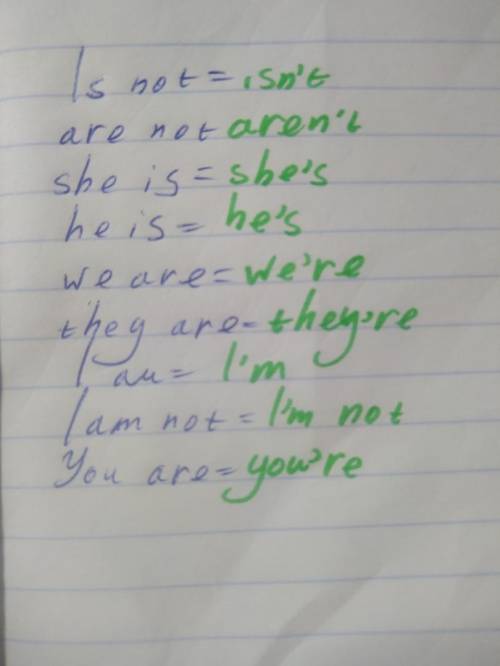 Is not = isn't
are not aren't
she is = she's
he is = he's
we are = we're
they are = they're
I am = I'm
I am not = I'm not
You are = you're